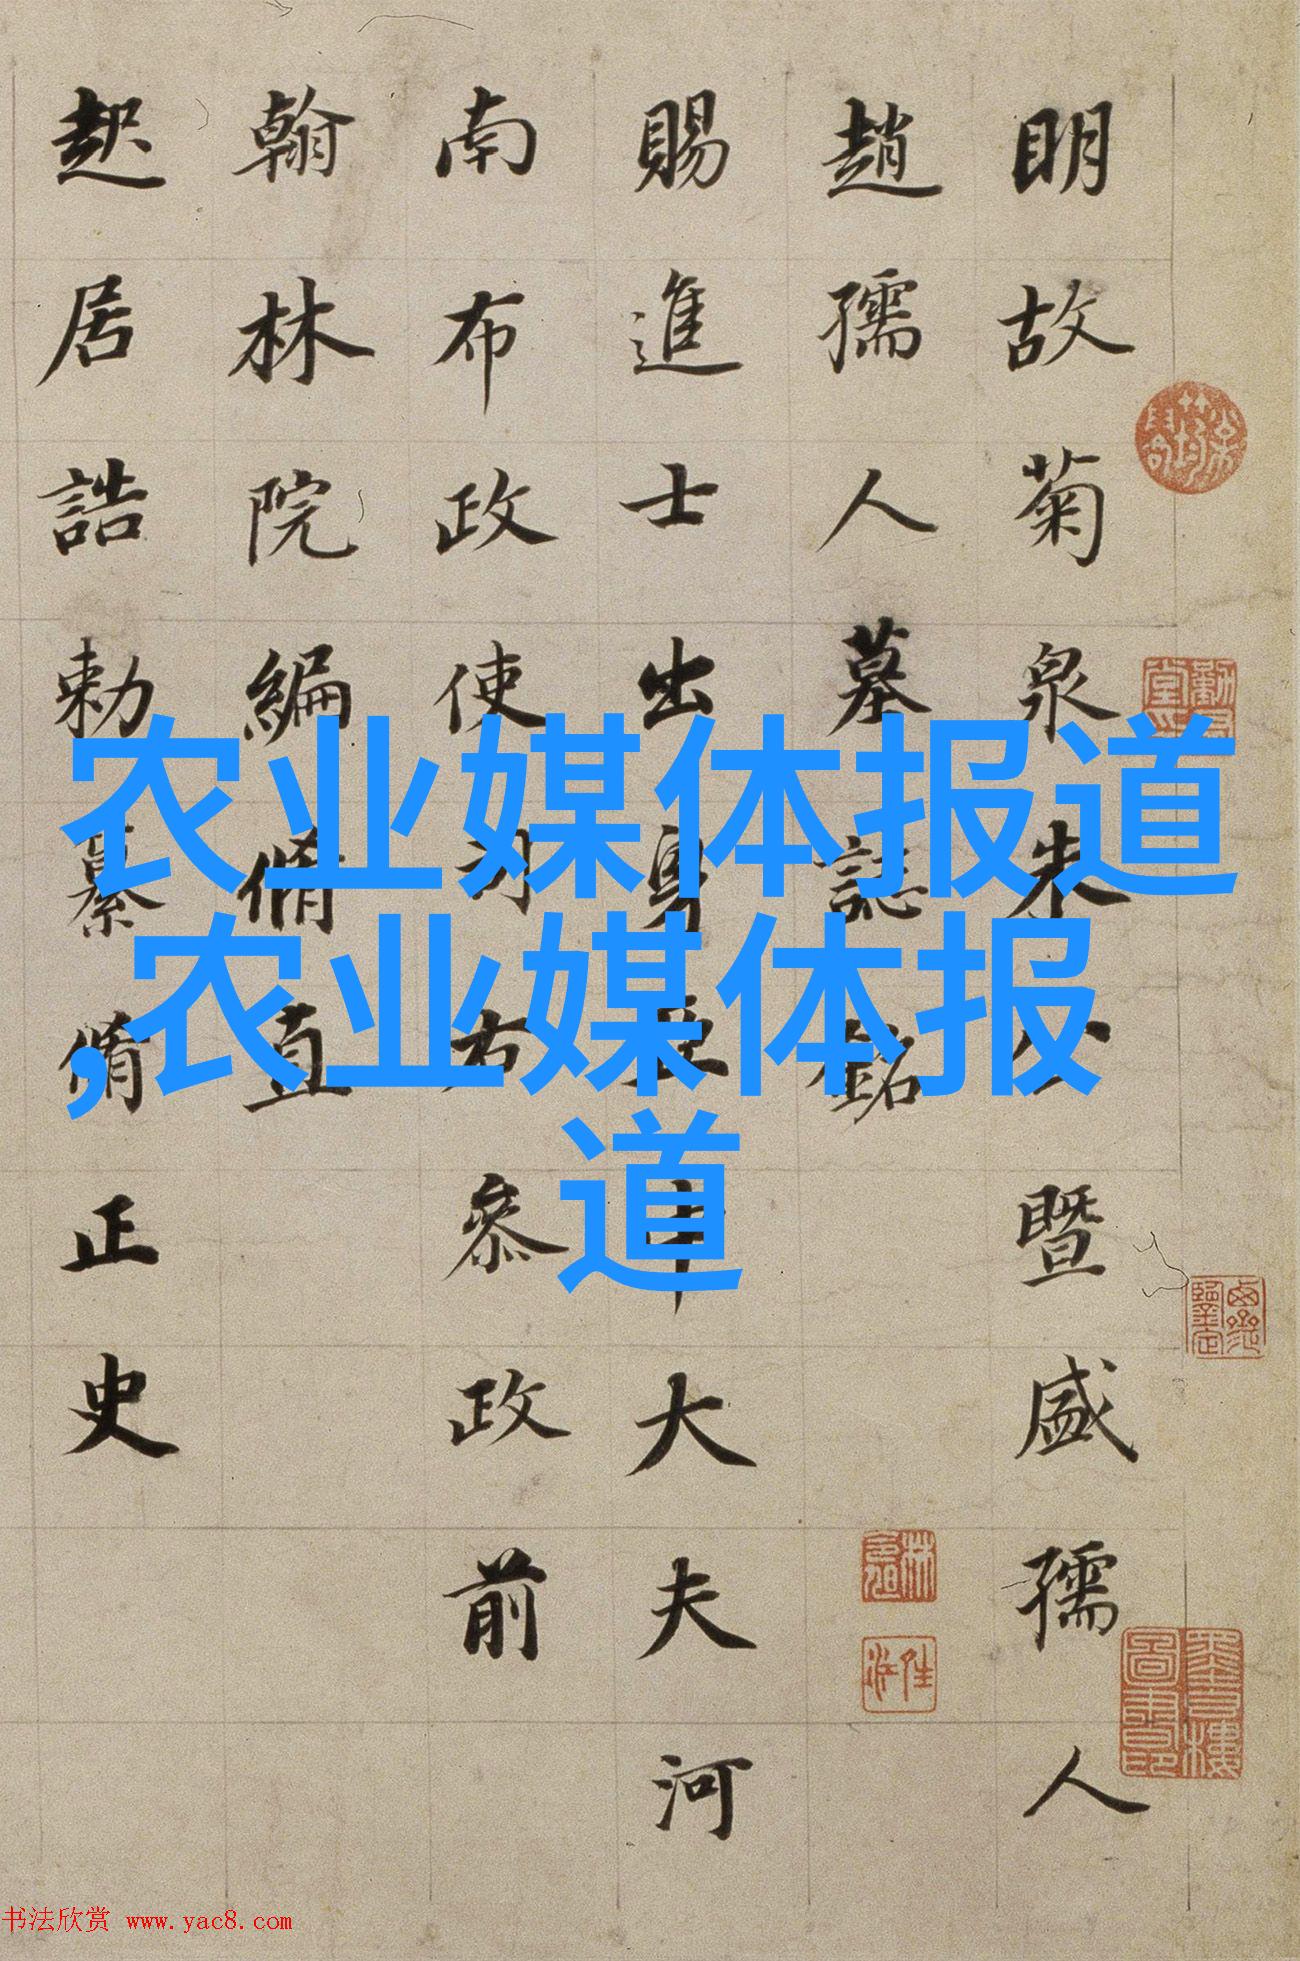 明故菊泉朱公暨盛孺人
趙孺人墓誌銘
賜進士出身亞中大夫河
南布政使司右叅政前
翰林院編脩直
起居誥勅纂脩正史
农业媒体报道
,农业媒体报
道
书法欣赏 www.yac8.com